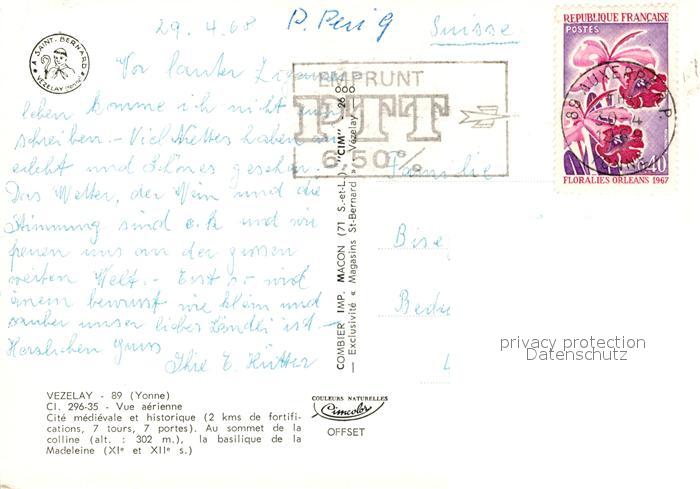 29.4.68
Suisse
A SAINT-BERNARD
VEZELAY (YONNE)
REPUBLIQUE FRANÇAISE
POSTES
0,40
FLORALIES ORLEANS 1967
89 AUXERRE R.P.
EMPRUNT
PTT
6,50%
Vor lauter
leben komme ich nicht zum
schreiben. - Viel Nettes haben wir
erlebt und Schönes gesehen.
Das Wetter, der Wein und die
Stimmung sind o.k. und wir
freuen uns an der grossen
weiten Welt. - Erst so wird
einem bewusst wie klein und
sauber unser liebes Ländli ist. -
Herzlichen Gruss
Ihre E. Hütter
Familie
COMBIER IMP. MACON (71 S.-et-L.) "CIM" - 26 000
— Exclusivité « Magasins St-Bernard » Vézelay —
privacy protection
Datenschutz
VEZELAY - 89 (Yonne)
CI. 296-35 - Vue aérienne
Cité médiévale et historique (2 kms de fortifi-
cations, 7 tours, 7 portes). Au sommet de la
colline (alt. : 302 m.), la basilique de la
Madeleine (XIe et XIIe s.)
COULEURS NATURELLES
Cimcolor
OFFSET